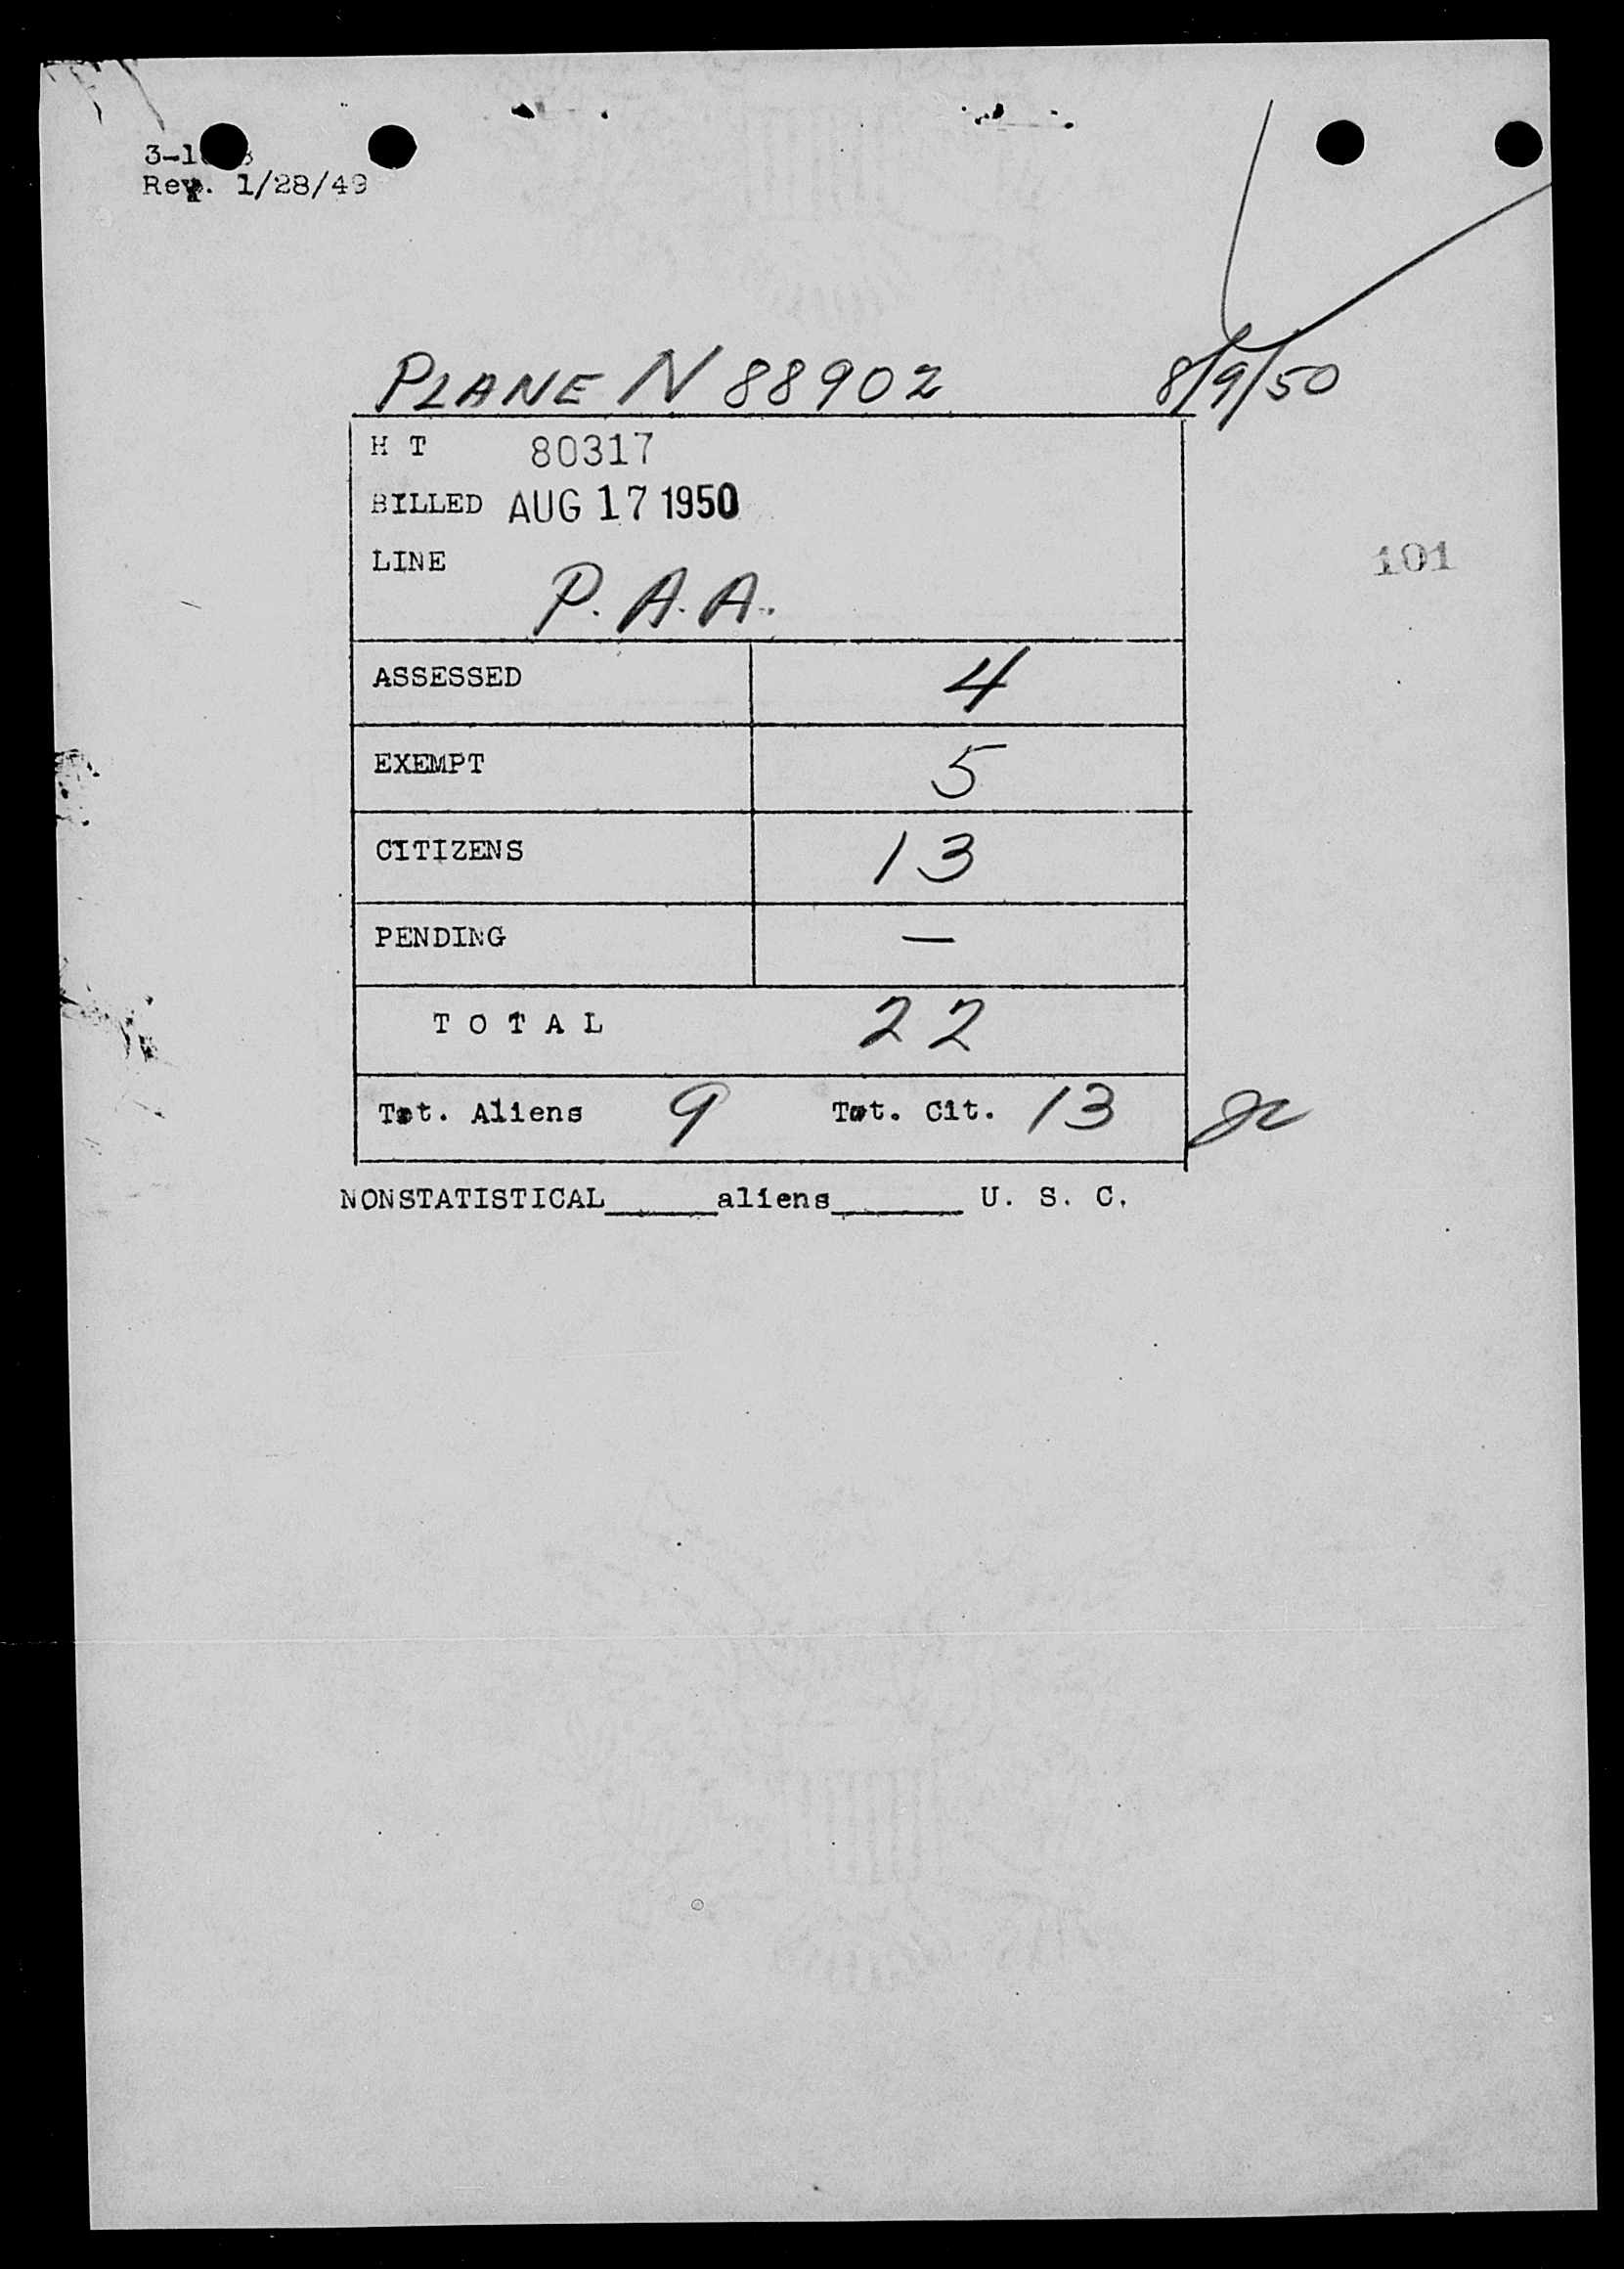 Rev. 1/28/49
PLANE N 88902 8/9/50
H T 80317
BILLED AUG 17 1950
LINE
P. A. A.
101
ASSESSED 4
EXEMPT 5
CITIZENS 13
PENDING —
T O T A L 22
Tot. Aliens 9 Tot. Cit. 13
NONSTATISTICAL______aliens_______ U. S. C.